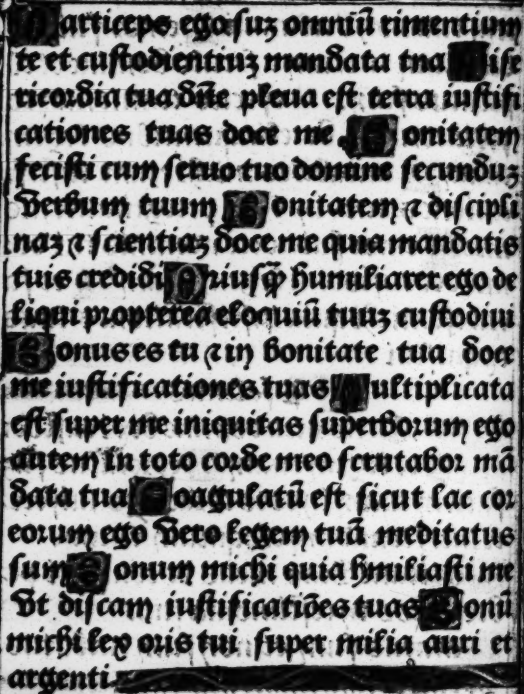 Particeps ego suʒ omniū timentium
te et custodientiuʒ mandata tua Mise
ricordia tua dn̄e plena est terra iustifi
cationes tuas doce me Bonitatem
fecisti cum seruo tuo domine secunduʒ
verbum tuum Bonitatem ⁊ discipli
naʒ ⁊ scientiaʒ doce me quia mandatis
tuis credidi Priusq̄ humiliarer ego de
liqui propterea eloquiū tuuʒ custodiui
Bonus es tu ⁊ in bonitate tua doce
me iustificationes tuas Multiplicata
est super me iniquitas superborum ego
autem in toto corde meo scrutabor mā
data tua Coagulatū est sicut lac cor
eorum ego vero legem tuā meditatus
sum Bonum michi quia hmiliasti me
vt discam iustificatiōes tuas Bonū
michi lex oris tui super milia auri et
argenti